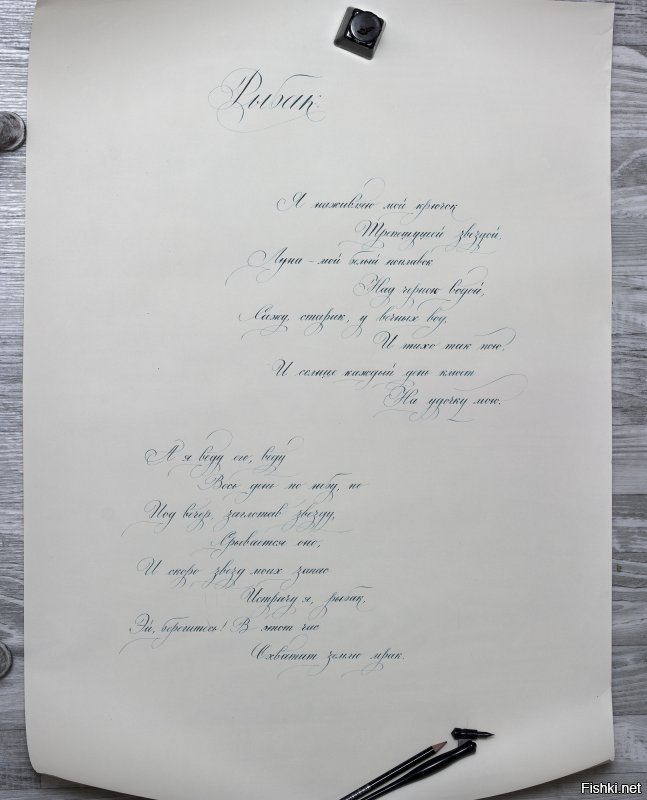 Рыбак.
Я наживлю мой крючок
Трепещущей звездой.
Луна – мой белый поплавок
Над черною водой.
Сижу, старик, у вечных вод,
И тихо так пою,
И солнце каждый день клюёт
На удочку мою.
А я веду его, веду
Весь день по небу, но
Под вечер, заглотав звезду,
Срывается оно,
И скоро звезд моих запас
Истрачу я, рыбак.
Эй, берегитесь! В этот час
Охватит землю мрак.
Fishki.net